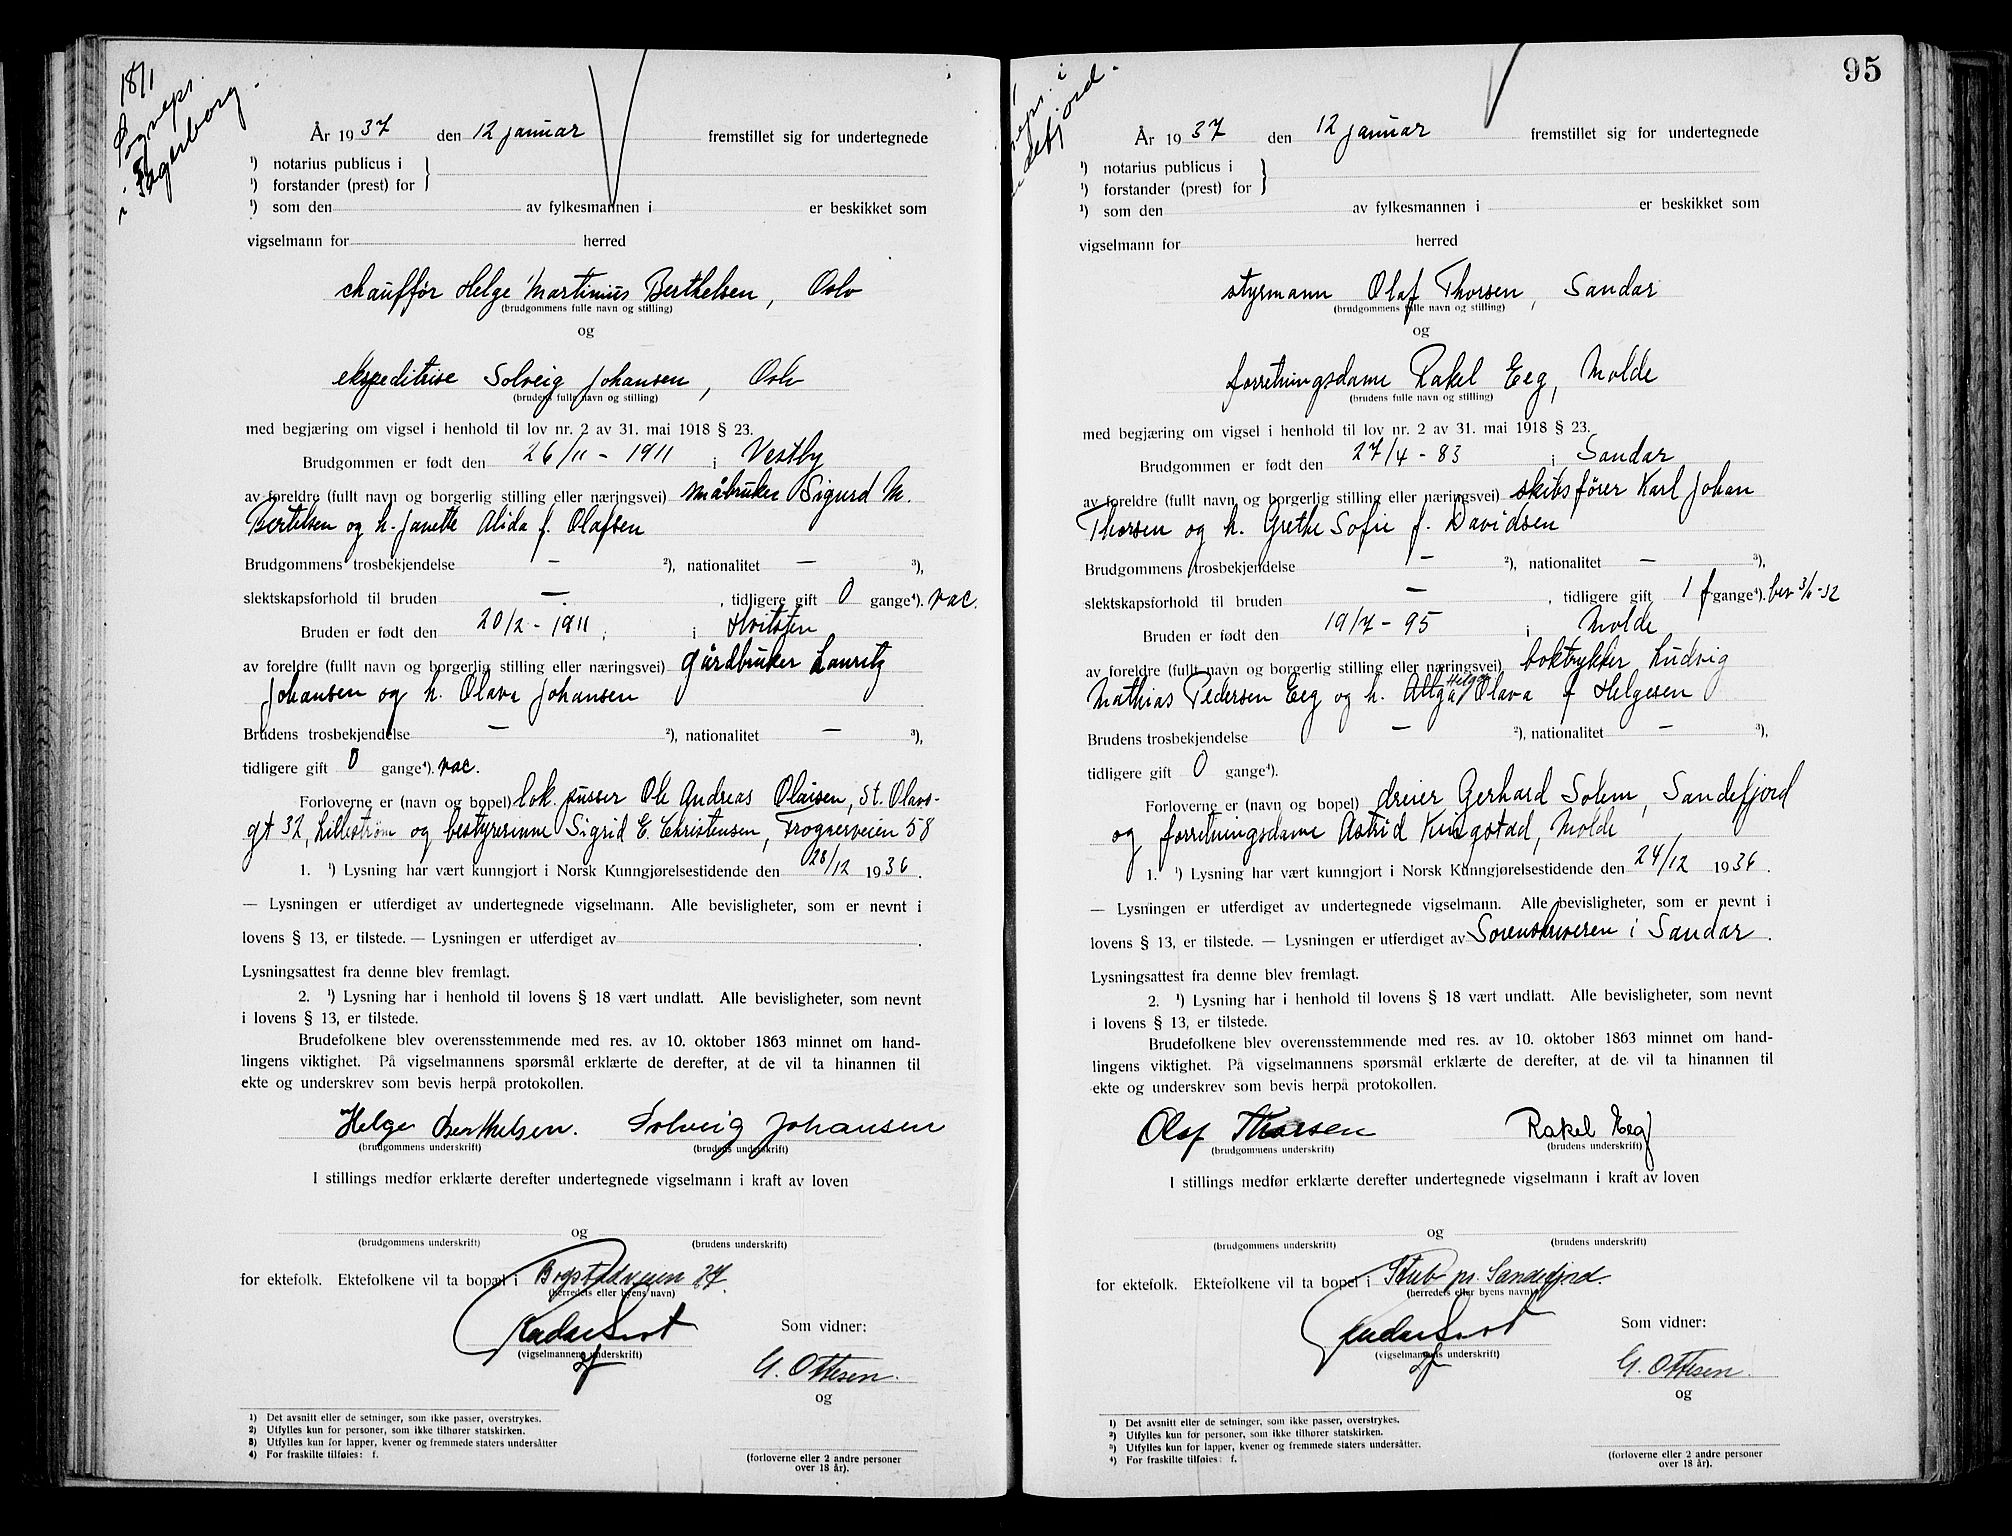 18/1
Sogneps.
i Fagerborg.
År 1937 den 12 januar fremstillet sig for undertegnede
¹) notarius publicus i
¹) forstander (prest) for
¹) som den av fylkesmannen i er beskikket som
vigselmann for herred
chauffør Helge Martinius Berthelsen, Oslo
(brudgommens fulle navn og stilling)
og
ekspeditrise Solveig Johansen, Oslo
(brudens fulle navn og stilling)
med begjæring om vigsel i henhold til lov nr. 2 av 31. mai 1918 § 23.
Brudgommen er født den 26/11 - 1911 i Vestby
av foreldre (fullt navn og borgerlig stilling eller næringsvei) småbruker Sigurd M.
Bertelsen og h. Janette Alida f. Olafsen
Brudgommens trosbekjendelse — ²), nationalitet — ³),
slektskapsforhold til bruden — , tidligere gift 0 gange⁴). vac.
Bruden er født den 20/2 - 1911, i Hvitsten
av foreldre (fullt navn og borgerlig stilling eller næringsvei) gårdbruker Lauritz
Johansen og h. Olava Johansen
Brudens trosbekjendelse — ²), nationalitet — ³),
tidligere gift 0 gange⁴). vac.
Forloverne er (navn og bopel) lok. pusser Ole Andreas Olaisen, St. Olavs-
gt 32, Lillestrøm og bestyrerinne Sigrid E. Christensen, Frognerveien 58
1. ¹) Lysning har vært kunngjort i Norsk Kunngjørelsestidende den 28/12 1936.
— Lysningen er utferdiget av undertegnede vigselmann. Alle bevisligheter, som er nevnt i
lovens § 13, er tilstede. — Lysningen er utferdiget av .
Lysningsattest fra denne blev fremlagt.
2. ¹) Lysning har i henhold til lovens § 18 vært undlatt. Alle bevisligheter, som nevnt
i lovens § 13, er tilstede.
Brudefolkene blev overensstemmende med res. av 10. oktober 1863 minnet om hand-
lingens viktighet. På vigselmannens spørsmål erklærte de derefter, at de vil ta hinannen til
ekte og underskrev som bevis herpå protokollen.
Helge Berthelsen. Solveig Johansen
(brudgommens underskrift) (brudens underskrift)
I stillings medfør erklærte derefter undertegnede vigselmann i kraft av loven
og
(brudgommens underskrift) (brudens underskrift)
for ektefolk. Ektefolkene vil ta bopel i Bogstadveien 27.
(herredets eller byens navn)
Som vidner:
(vigselmannens underskrift)
G. Ottesen.
og
¹) Det avsnitt eller de setninger, som ikke passer, overstrykes.
²) Utfylles kun for personer, som ikke tilhører statskirken.
³) Utfylles kun for lapper, kvener og fremmede staters undersåtter
⁴) For fraskilte tilføies: f.
(forloverne eller 2 andre personer
over 18 år).
95
År 1937 den 12 januar fremstillet sig for undertegnede
¹) notarius publicus i
¹) forstander (prest) for
¹) som den av fylkesmannen i er beskikket som
vigselmann for herred
styrmann Olaf Thorsen, Sandar
(brudgommens fulle navn og stilling)
og
forretningsdame Rakel Eeg, Molde
(brudens fulle navn og stilling)
med begjæring om vigsel i henhold til lov nr. 2 av 31. mai 1918 § 23.
Brudgommen er født den 27/4 - 83 i Sandar
av foreldre (fullt navn og borgerlig stilling eller næringsvei) skibsfører Karl Johan
Thorsen og h. Grethe Sofie f. Davidsen
Brudgommens trosbekjendelse — ²), nationalitet — ³),
slektskapsforhold til bruden — , tidligere gift 1 f gange⁴). bev 3/6-32
Bruden er født den 19/7 - 95 i Molde
av foreldre (fullt navn og borgerlig stilling eller næringsvei) boktrykker Ludvig
Mathias Pedersen Eeg og h. Olava f Helgesen
Brudens trosbekjendelse — ²), nationalitet — ³),
tidligere gift 0 gange⁴).
Forloverne er (navn og bopel) dreier Gerhard Solem, Sandefjord
og forretningsdame Astrid Kringstad, Molde
1. ¹) Lysning har vært kunngjort i Norsk Kunngjørelsestidende den 24/12 1936.
— Lysningen er utferdiget av undertegnede vigselmann. Alle bevisligheter, som er nevnt i
lovens § 13, er tilstede. — Lysningen er utferdiget av Sorenskriveren i Sandar.
Lysningsattest fra denne blev fremlagt.
2. ¹) Lysning har i henhold til lovens § 18 vært undlatt. Alle bevisligheter, som nevnt
i lovens § 13, er tilstede.
Brudefolkene blev overensstemmende med res. av 10. oktober 1863 minnet om hand-
lingens viktighet. På vigselmannens spørsmål erklærte de derefter, at de vil ta hinannen til
ekte og underskrev som bevis herpå protokollen.
Olaf Thorsen Rakel Eeg
(brudgommens underskrift) (brudens underskrift)
I stillings medfør erklærte derefter undertegnede vigselmann i kraft av loven
og
(brudgommens underskrift) (brudens underskrift)
for ektefolk. Ektefolkene vil ta bopel i Stub pr. Sandefjord.
(herredets eller byens navn)
Som vidner:
(vigselmannens underskrift)
G. Ottesen.
og
¹) Det avsnitt eller de setninger, som ikke passer, overstrykes.
²) Utfylles kun for personer, som ikke tilhører statskirken.
³) Utfylles kun for lapper, kvener og fremmede staters undersåtter.
⁴) For fraskilte tilføies: f.
(forloverne eller 2 andre personer
over 18 år).